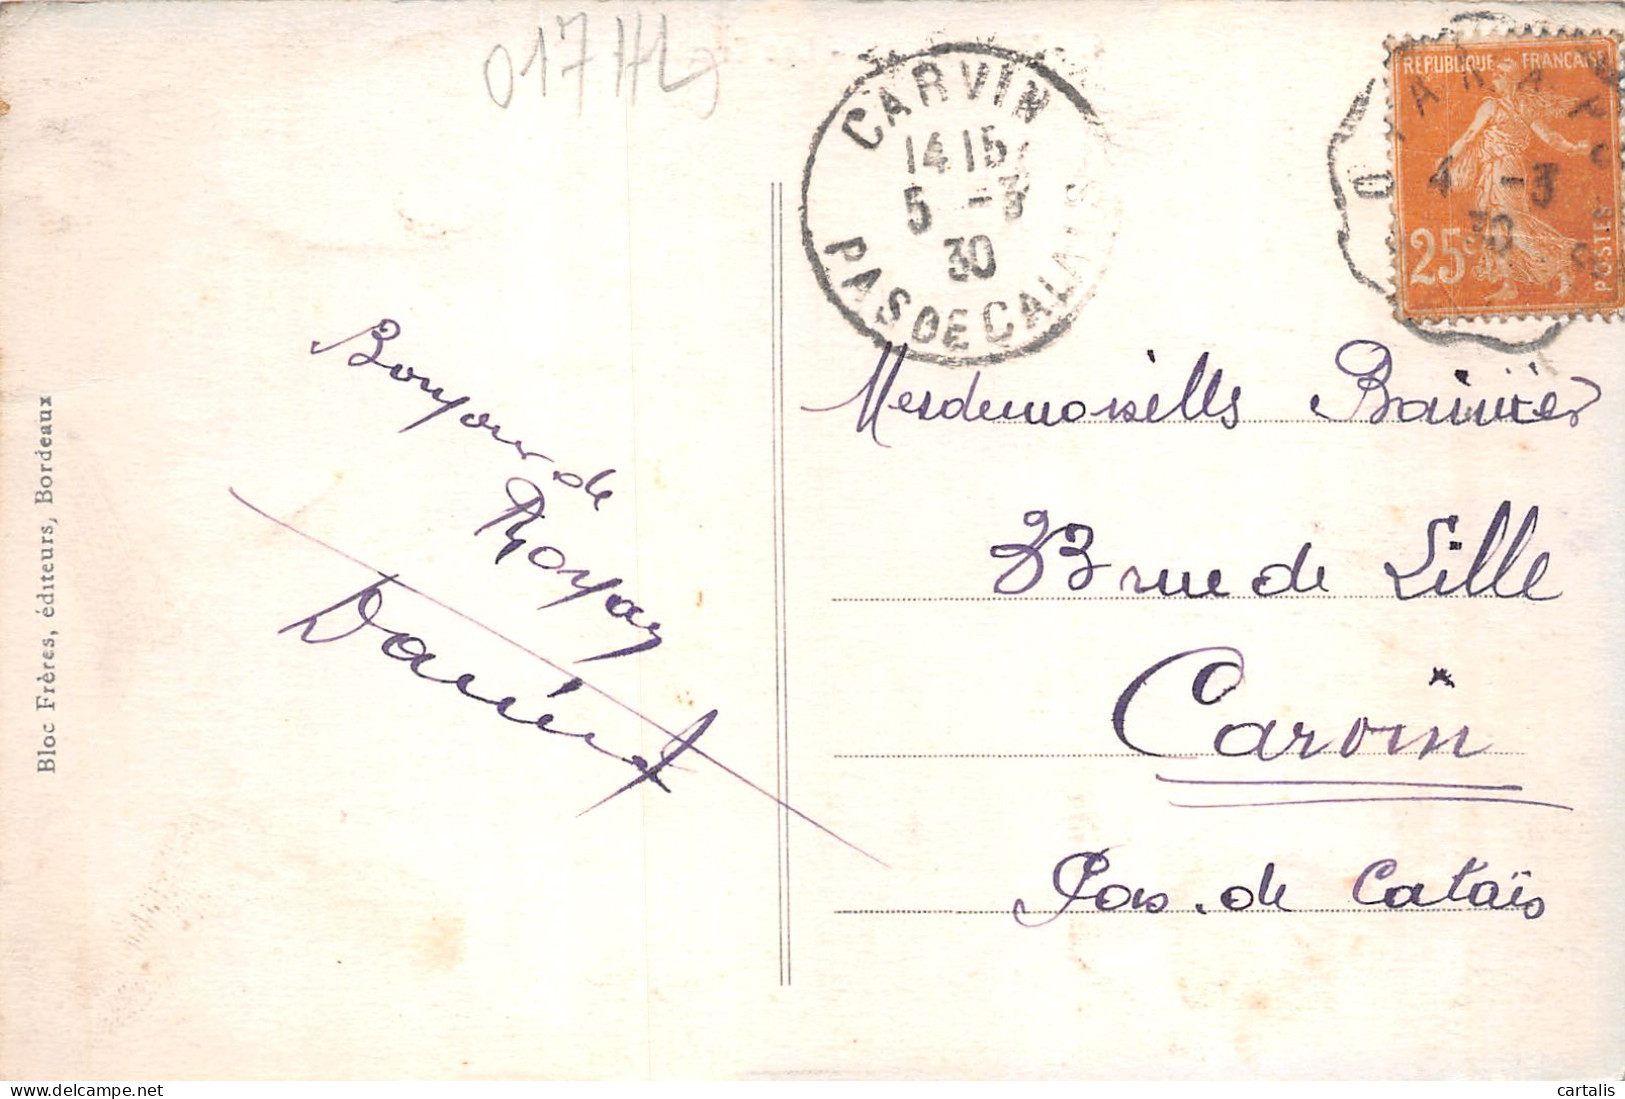 017 HL
CARVIN
14 15
5 -3
30
PAS DE CALAIS
REPUBLIQUE FRANÇAISE
4 -3
30
25c
POSTES
Bonjour de
Royan
Daniel
Mesdemoiselles
33 rue de Lille
Carvin
Pas-de Calais
Bloc Frères, éditeurs, Bordeaux
delcampe.net
cartalis